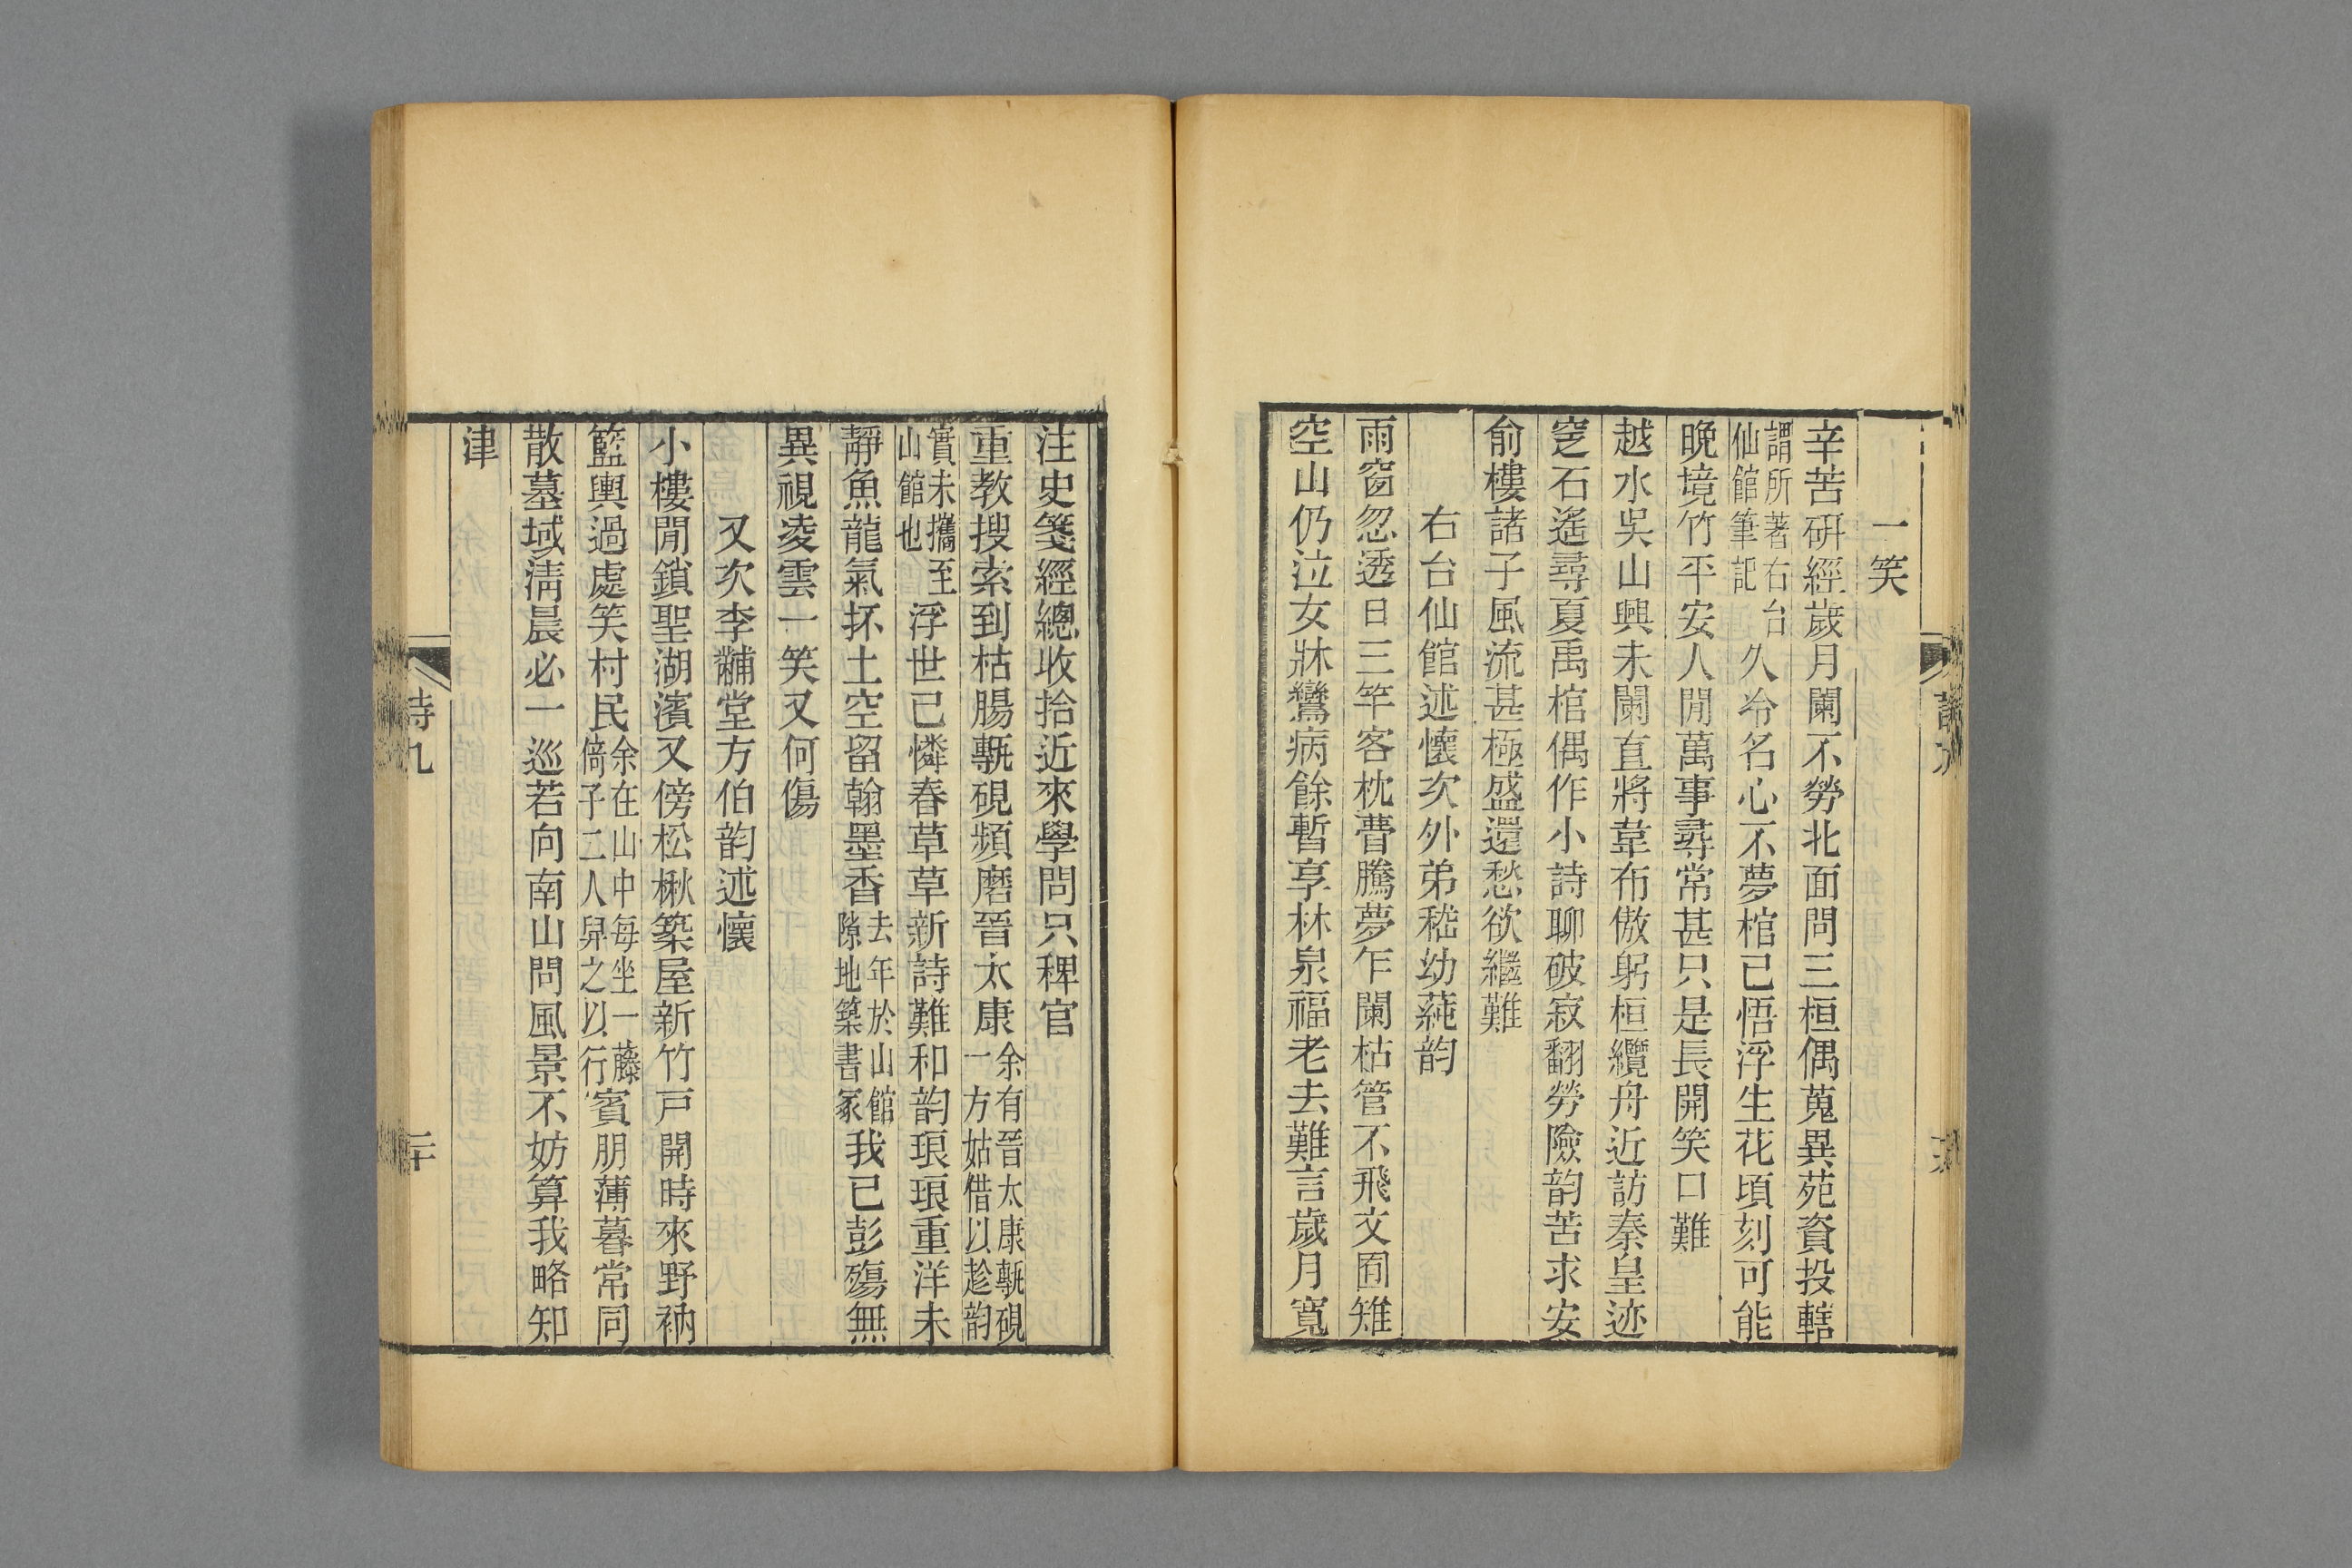 一笑
辛苦硏經歲月闌不勞北面問三桓偶蒐異苑資投轄
謂所著右台仙館筆記久冷名心不夢棺已悟浮生花頃刻可能
晚境竹平安人閒萬事尋常甚只是長開笑口難
越水吳山興未闌直將韋布傲躬桓纜舟近訪秦皇迹
窆石遙尋夏禹棺偶作小詩聊破寂翻勞險韵苦求安
俞樓諸子風流甚極盛還愁欲繼難
右台仙館述懷次外弟嵇幼蒓韵
雨窗忽透日三竿客枕瞢騰夢乍闌枯管不飛文囿雉
空山仍泣女牀鸞病餘暫享林泉福老去難言歲月寬
注史箋經總收拾近來學問只稗官
重教搜索到枯腸甎硯頻磨晉太康余有晉太康甎硯一方姑借以趁韵
實未攜至山館也浮世已憐春草草新詩難和韵琅琅重洋未
靜魚龍氣抔土空留翰墨香去年於山館隙地築書冢我已彭殤無
異視凌雲一笑又何傷
又次李黼堂方伯韵述懷
小樓閒鎖聖湖濱又傍松楸築屋新竹戸開時來野衲
籃輿過處笑村民余在山中每坐一藤倚子二人舁之以行賓朋薄暮常同
散墓域淸晨必一巡若向南山問風景不妨算我略知
津
詩九
二十